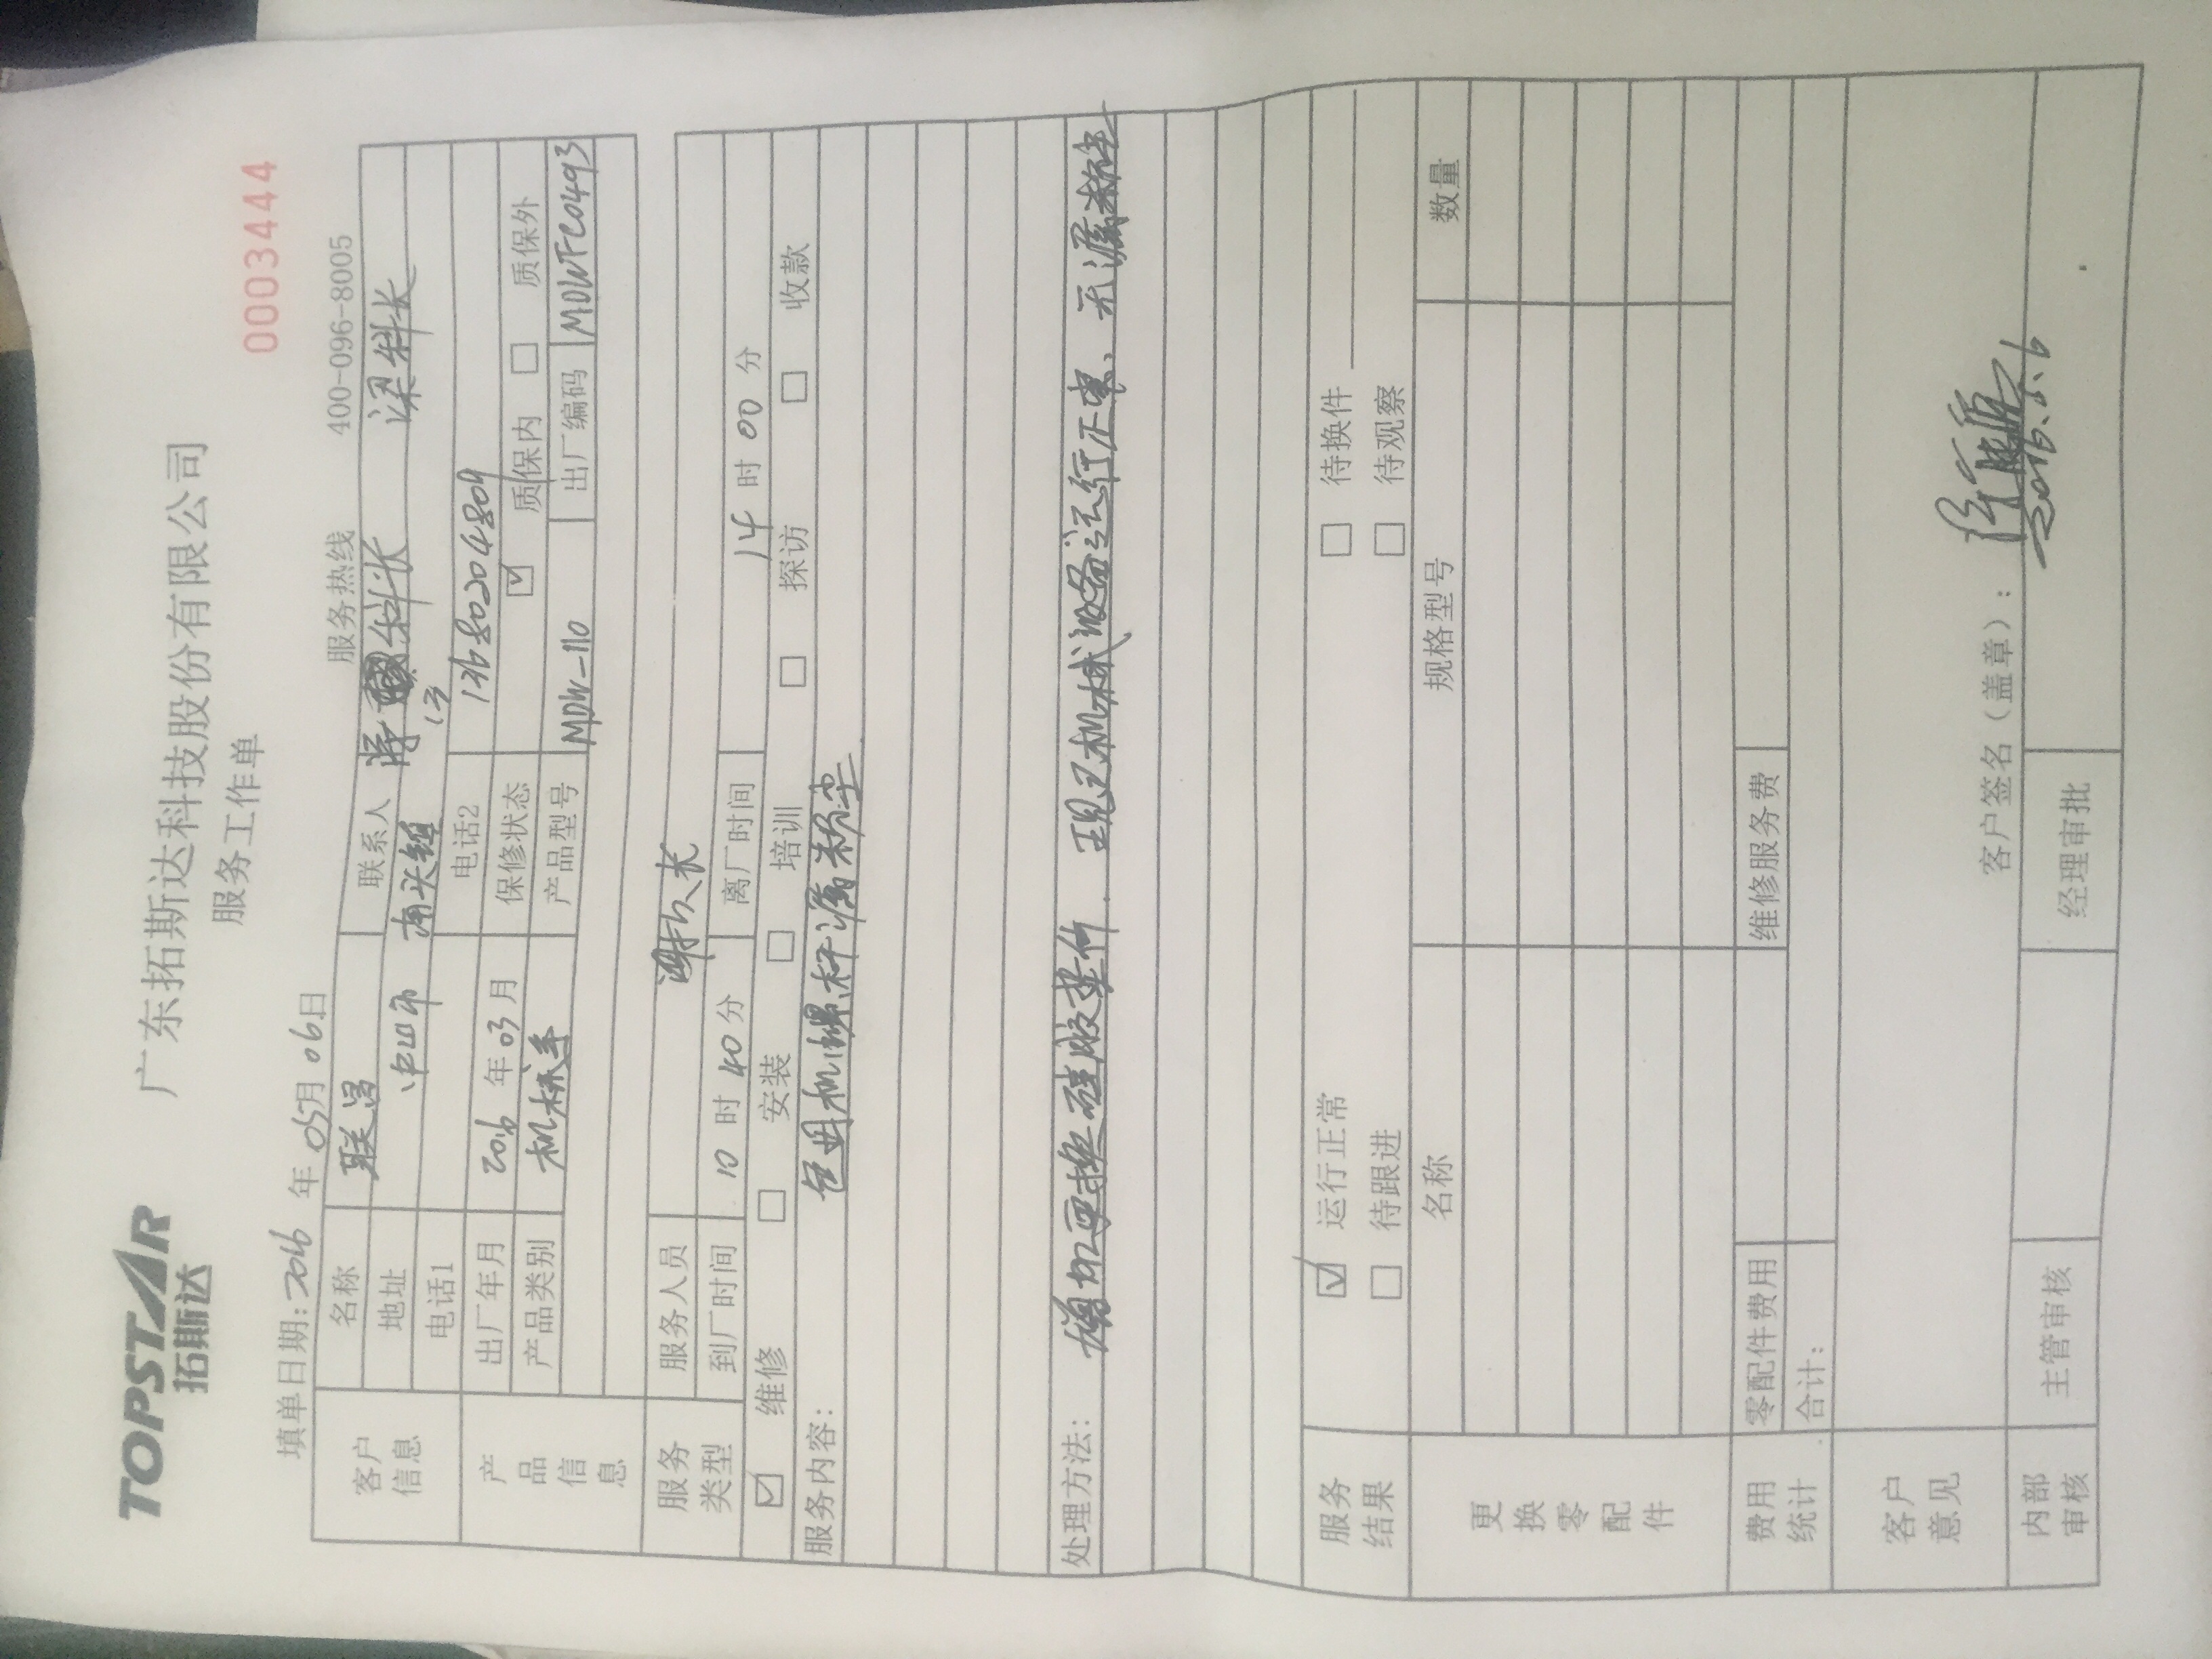 TOPSTAR
拓斯达
广东拓斯达科技股份有限公司
服务工作单
0003444
填单日期：2016 年 05月 06日 服务热线 400-096-8005
客户信息
名称 联昌 联系人 科长 梁科长
地址 中山市 南头镇
电话1 电话2 13680204809
产品信息
出厂年月 2016 年 03 月 保修状态 ☑ 质保内 □ 质保外
产品类别 机械手 产品型号 MDW-110 出厂编码 MDWFC0493
服务类型
服务人员 谢久长
到厂时间 10 时 40 分 离厂时间 14 时 00 分
☑ 维修 □ 安装 □ 培训 □ 探访 □ 收款
服务内容： 机螺杆漏粉尘
处理方法： 增加更换硅胶垫件. 现机械设备运行正常、无漏粉尘
服务结果
☑ 运行正常 □ 待换件
□ 待跟进 □ 待观察
更换零配件
名称 规格型号 数量
费用统计
零配件费用 维修服务费
合计：
客户意见
客户签名（盖章）：
2016.5.6
内部审核
主管审核 经理审批